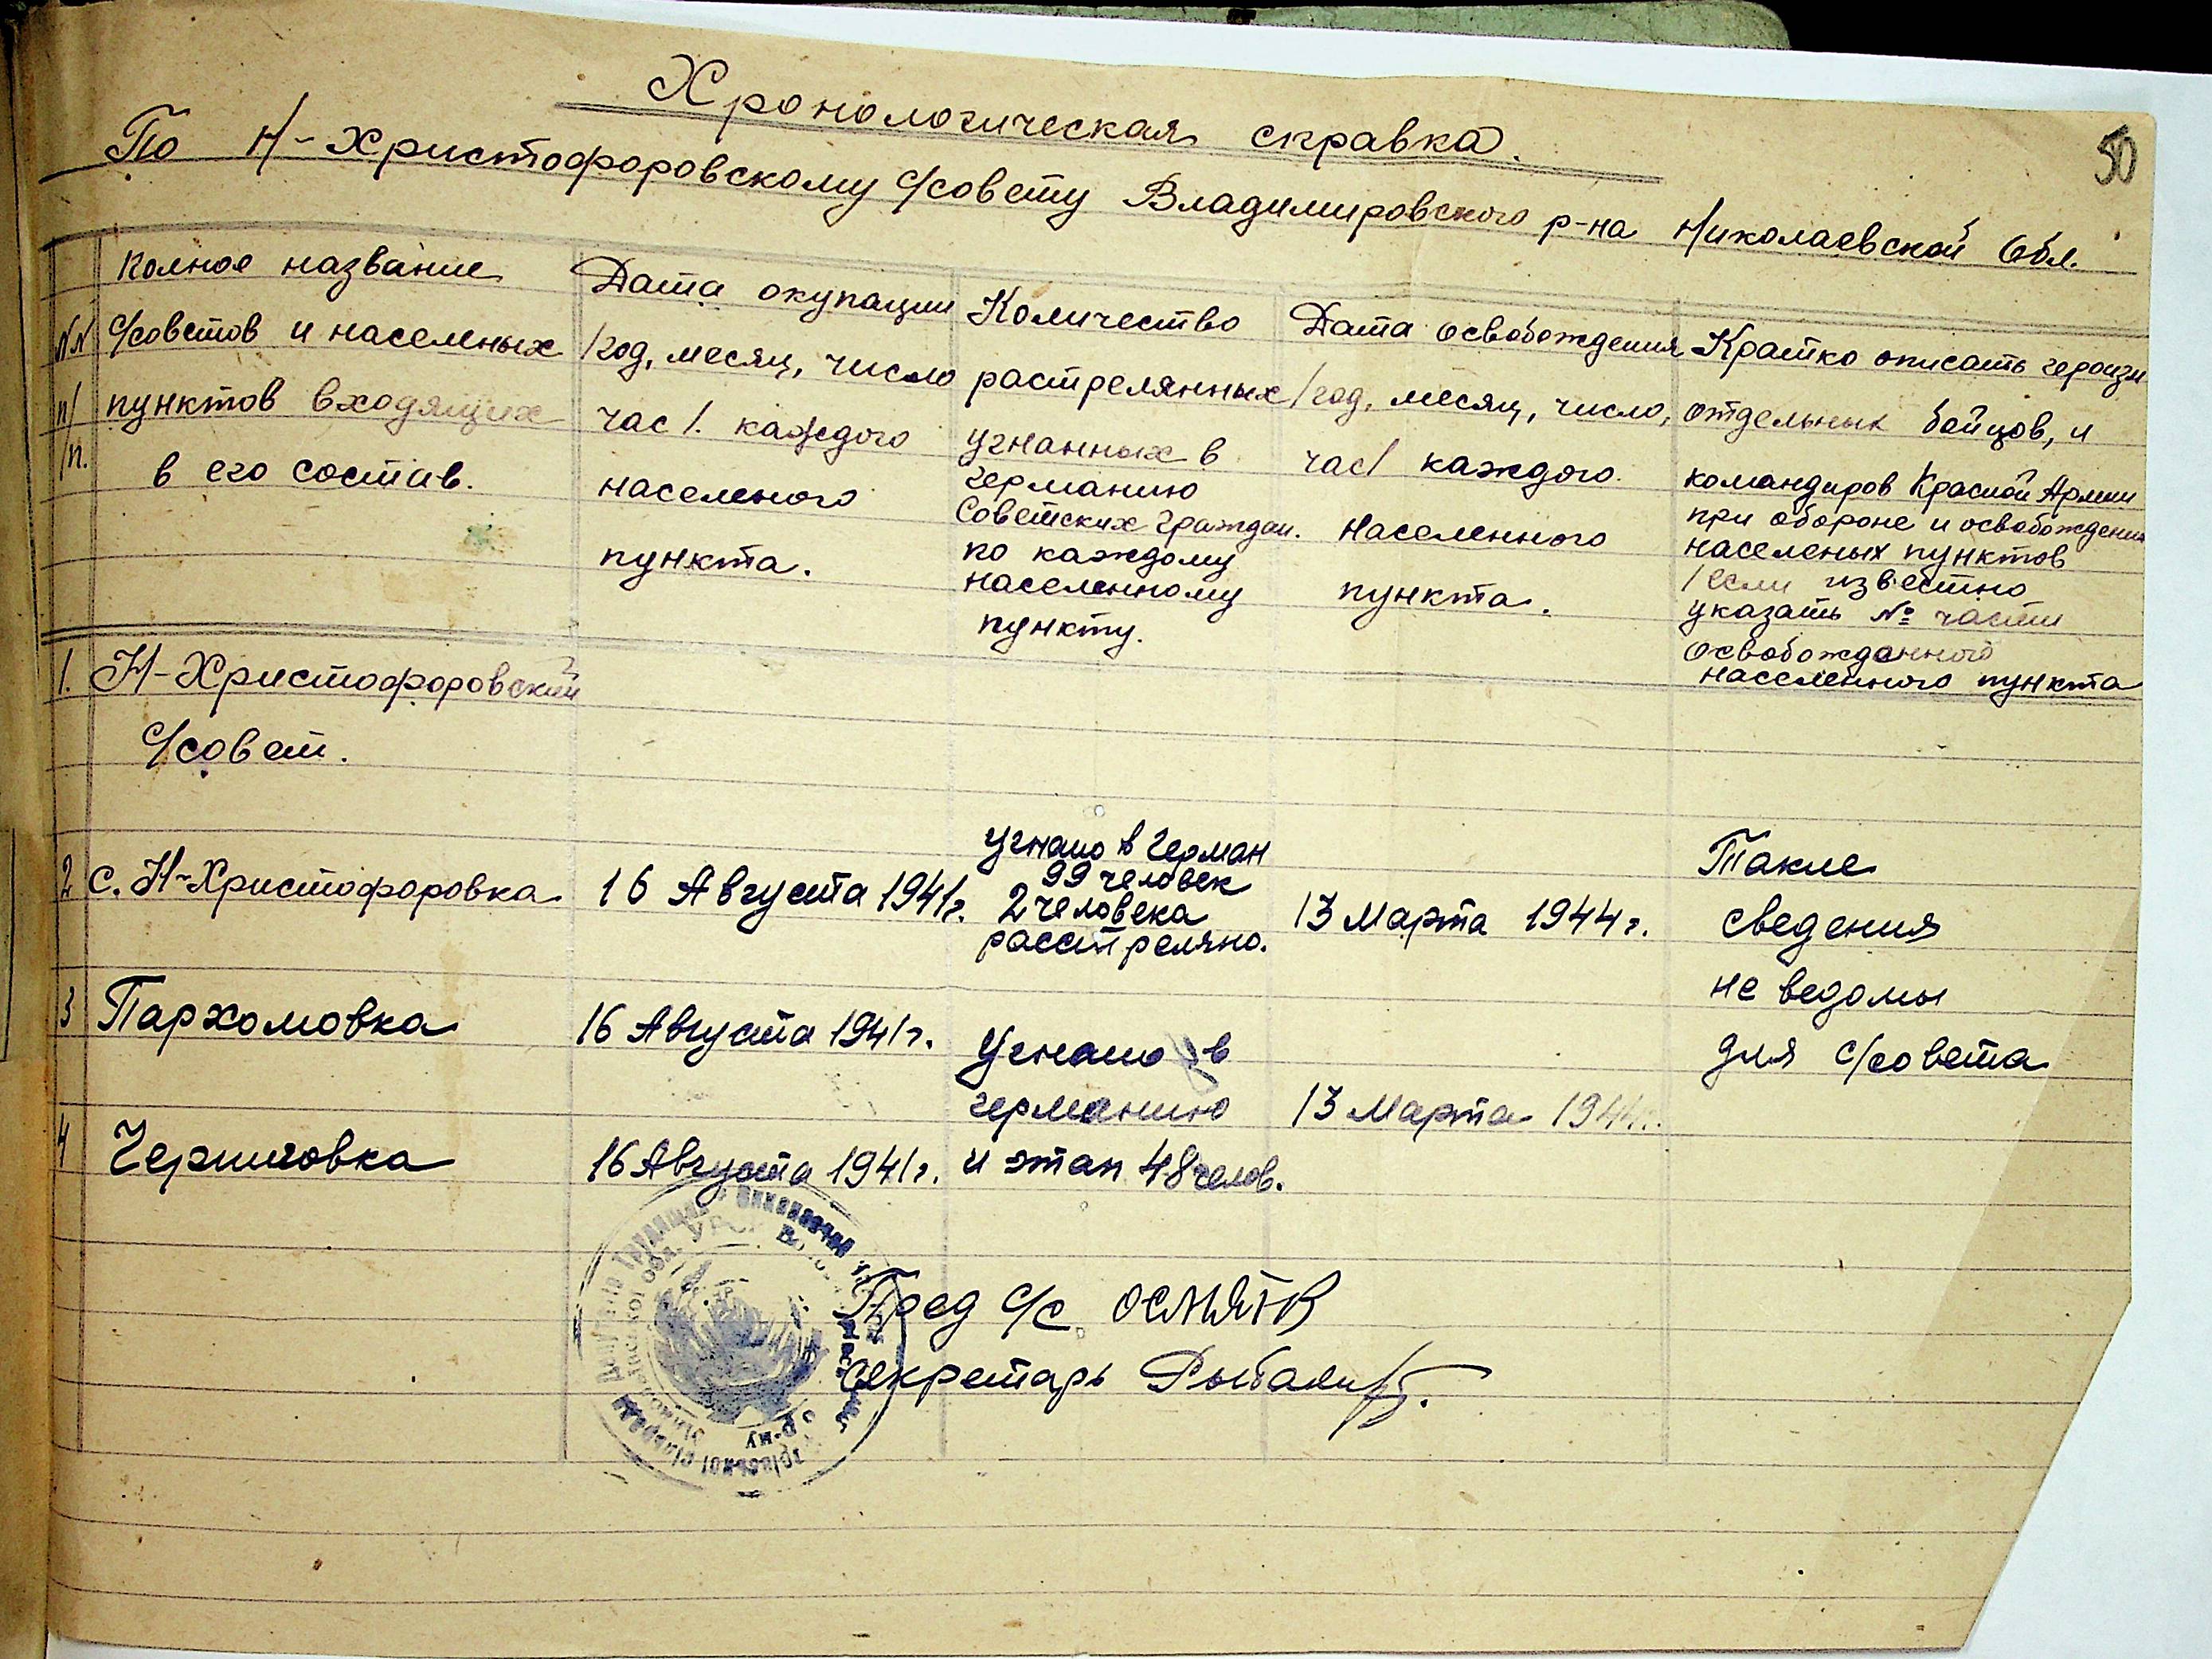 50
Хронологическая справка.
По Н-Христофоровскому с/совету Владимировского р-на Николаевской Обл.
NN п/п.
полное название
с/советов и населеных
пунктов входящих
в его состав.
Дата окупации
/год, месяц, число
час/. каждого
населеного
пункта.
Количество
растрелянных
угнанных в
германию
Советских граждан.
по каждому
населенному
пункту.
Дата освобождения
/год, месяц, число,
час/ каждого
населенного
пункта.
Кратко описать героизм
отдельных бойцов, и
командиров Красной Армии
при обороне и освобождении
населеных пунктов
/если известно
указать № части
освобожданного
населенного пункта
1. Н-Христофоровский
с/совет.
2 с. Н-Христофоровка
16 Августа 1941г.
Угнано в Герман
99 человек
2 человека
расстреляно.
13 Марта 1944г.
Такие
сведения
не ведомы
для с/совета
3 Пархомовка
16 Августа 1941г.
4 Черниговка
16 Августа 1941г.
Угнано в
германию
и этап 48 челов.
13 Марта 1944г.
Пред с/с
секретарь